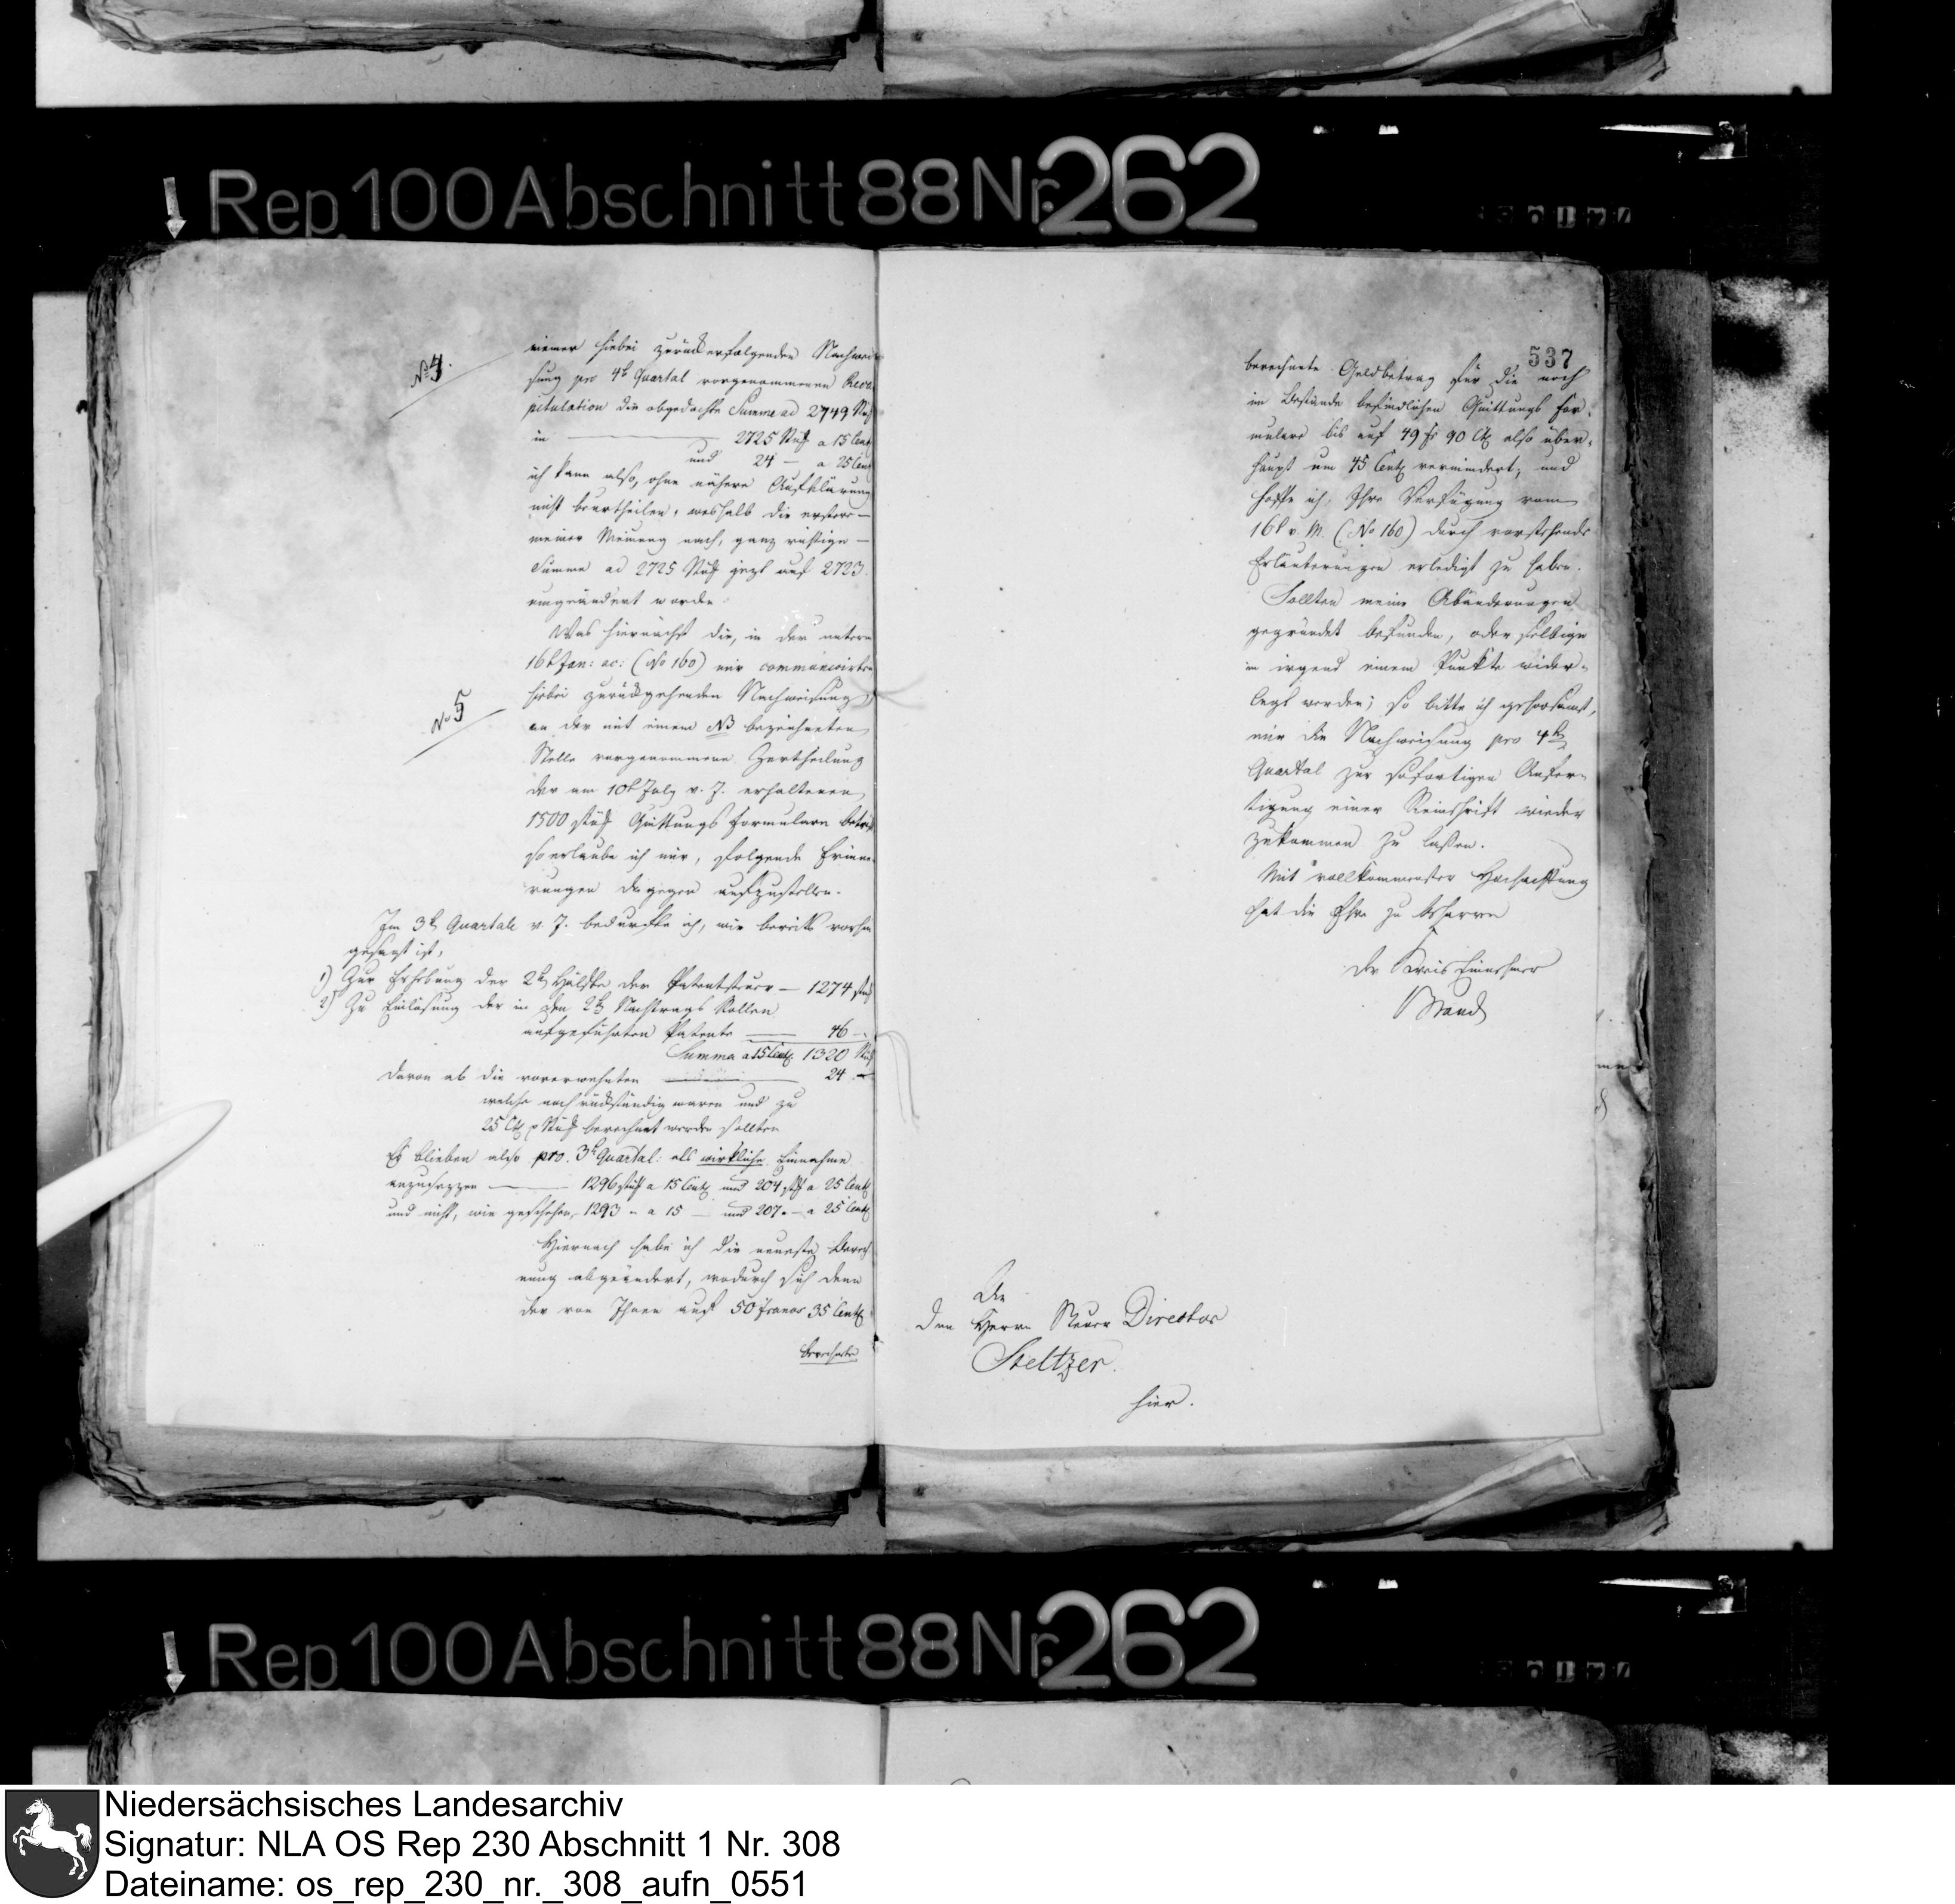 Rep. 100 Abschnitt 88 Nr. 262
No 4.
meiner hiebei zurück erfolgenden Nachwei
sung pro 4t Quartal vorgenommenen Reca
pitulation die abgedachte Summe ad 2749 Stück
in — 2725 Stück a 15 Cent
und 24 — a 25 Cent
ich kann also, ohne nähere Aufklärung
nicht beurtheilen, weshalb die erstere —
meiner Meinung nach, ganz richtige —
Summe ad 2725 Stück jezt auf 2723.
umgeändert worde.
Was hiernächst die, in der unterm
16t Jan: ac: (No 160) mir communicirten
No 5
hiebei zurückgehenden Nachweisung,
an der mit einem NB bezeichneten
Stelle vorgenommene Zertheilung
der am 10t July v. J. erhaltenen
1500 Stück Quittungs formulare betrift
so erlaube ich mir, folgende Erinne-
rungen dagegen aufzustellen.
Im 3t Quartale v. J. bedurfte ich, wie bereits vorhin
gesagt ist,
1) Zur Erhebung der 2t Hälfte der Patentsteuer — 1274 Stück
2) Zu Einlösung der in den 2t Nachtrags Rollen
aufgeführten Patente — 46 —
Summa a 15 Cent 1320 Stück
davon ab die vorerwehnten — 24 —
welche noch rückständig waren und zu
25 Ct p Stück berechnet werden sollten
Es blieben also pro. 3t Quartal: als wirkliche Einnahme
anzusezzen — 1296 Stück a 15 Cent und 204 Stück a 25 Cent
und nicht, wie geschehen, 1293 — a 15 — und 207. — a 25 Cent
Hiernach habe ich die neueste Berech
nung abgeändert, wodurch sich denn
der von Ihnen auf 50 Francs 35 Cent
berechnete
537
berechnete Geldbetrag für die noch
im Bestande befindlichen Quittungs for-
mulare bis auf 49 fr 90 Ct also über-
haupt um 45 Cent vermindert; und
hoffe ich, Ihre Verfügung vom
16t v. M. (No 160) durch vorstehende
Erläuterungen erledigt zu haben.
Sollten meine Abänderungen
gegründet befunden, oder selbige
in irgend einem Punkte wider-
legt werden; so bitte ich gehorsamst,
mir die Nachweisung pro 4t
Quartal zur sofortigen Anfer-
tigung einer Reinschrift wieder
zukommen zu laßen.
Mit vollkommenster Hochachtung
hat die Ehre zu beharren
der Kreis Einnehmer
Brand
An
den Herrn Steuer Director
Steltzer.
hier.
Rep. 100 Abschnitt 88 Nr. 262
Niedersächsisches Landesarchiv
Signatur: NLA OS Rep 230 Abschnitt 1 Nr. 308
Dateiname: os_rep_230_nr._308_aufn_0551